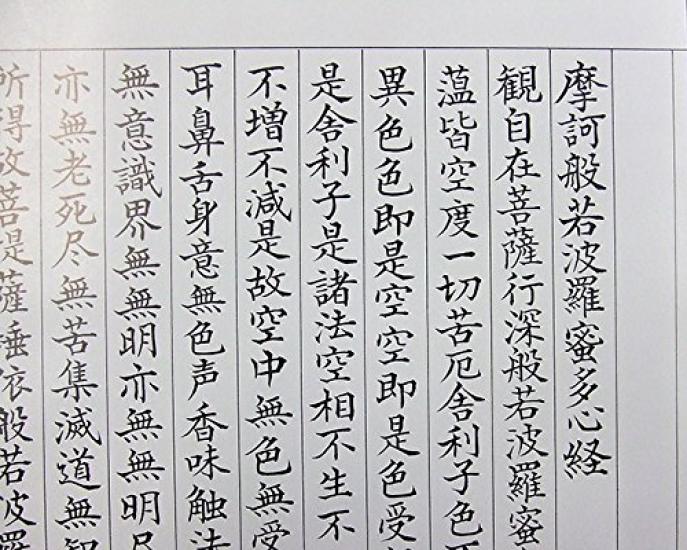 摩訶般若波羅蜜多心経
観自在菩薩行深般若波羅蜜
蕰皆空度一切苦厄舎利子色
異色色即是空空即是色受
是舎利子是諸法空相不生不
不増不減是故空中無色無受
耳鼻舌身意無色声香味触法
無意識界無無明亦無無明尽
亦無老死尽無苦集滅道無智
所得故菩提薩埵依般若波羅